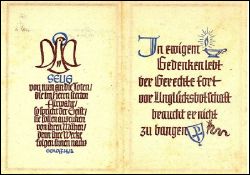 SELIG
von nun an die Toten,
die im Herrn sterben
Fürwahr,
so spricht der Geist,
sie sollen ausruhen
von ihren Mühen,
denn ihre Werke
folgen ihnen nach
In ewigem
Gedenken lebt
der Gerechte fort
vor Unglücksbotschaft
braucht er nicht
zu bangen